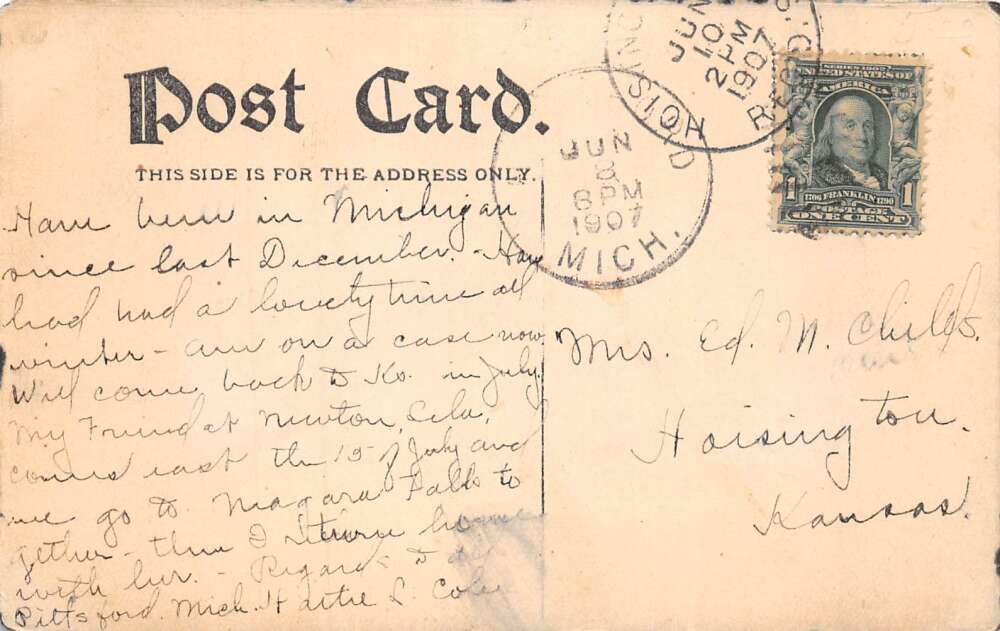 Post Card.
THIS SIDE IS FOR THE ADDRESS ONLY.
JUN
8
8 PM
1907
MICH.
JUN
10
2 PM
1907
REC'D.
SERIES 1902
UNITED STATES OF
AMERICA
1 1
1706 FRANKLIN 1790
POSTAGE
ONE CENT
Have been in Michigan
since last December. - Have
had had a lovely time all
winter - am on a case now.
Will come back to Ks. in July.
My Friend at Newton, Lela,
comes east the 15 of July and
we go to Niagara Falls to
gether - then I return home
with her. - Regards to all
Pittsford. Mich. Hattie L. Cole
Mrs. Ed. M. Childs.
Hoisington.
Kansas.